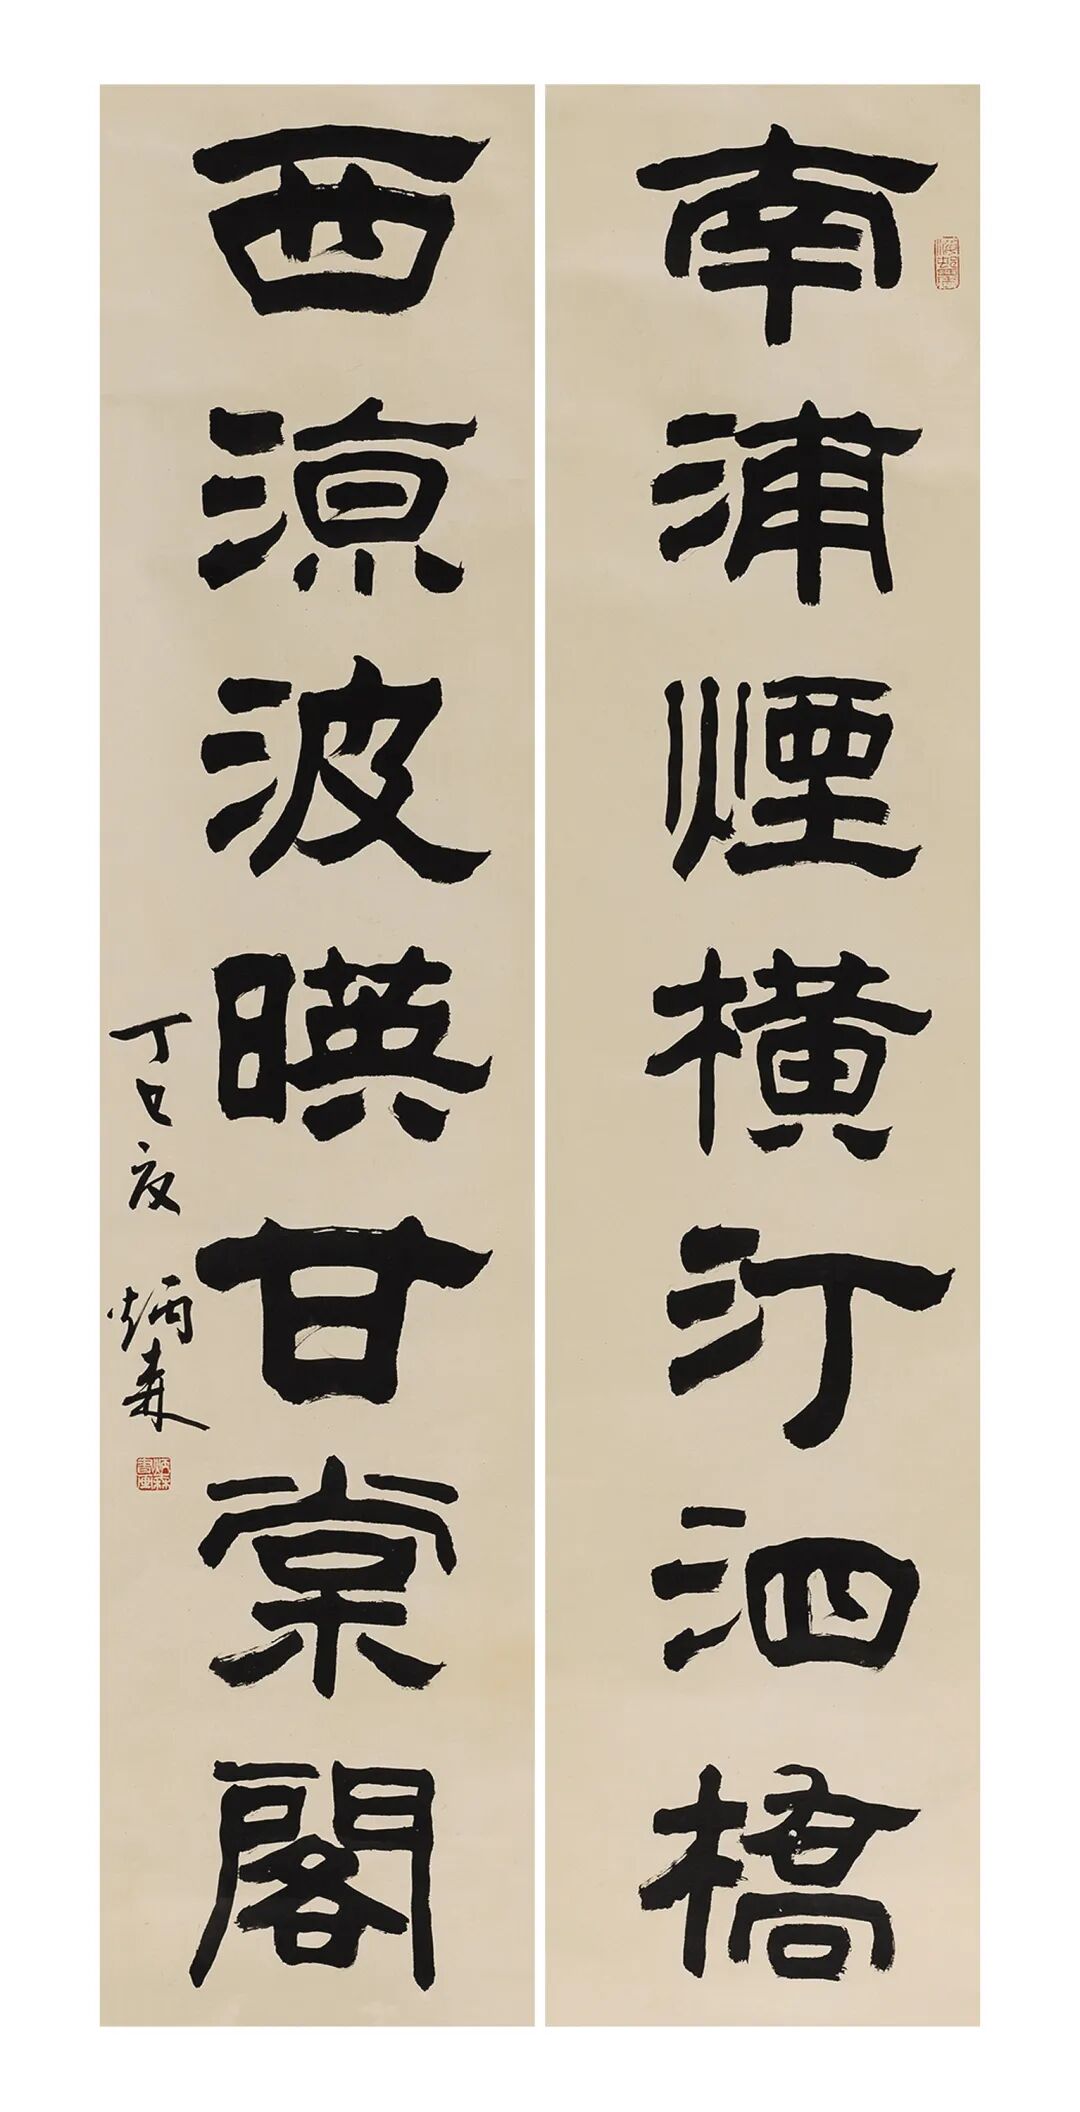 南浦煙橫汀泗橋
西涼波暎甘棠閣
丁巳夏 炳森